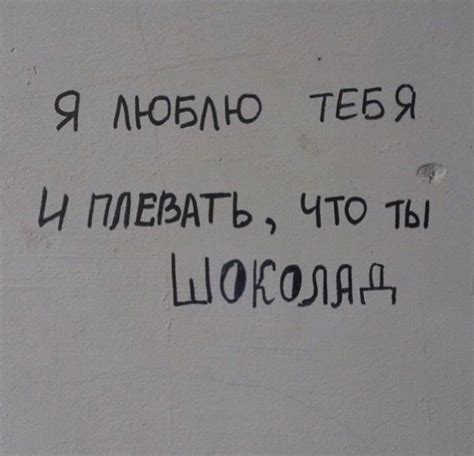 Я ЛЮБЛЮ ТЕБЯ
И ПЛЕВАТЬ, ЧТО ТЫ
ШОКОЛАД